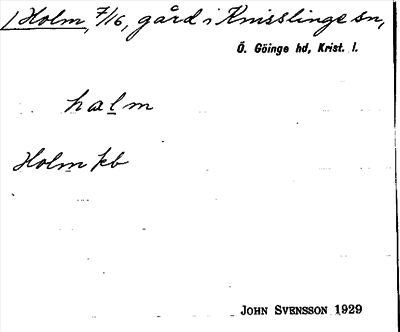 Holm, 7/16, gård i Knisslinge sn,
Ö. Göinge hd, Krist. l.
halm
Holm kb
JOHN SVENSSON 1929